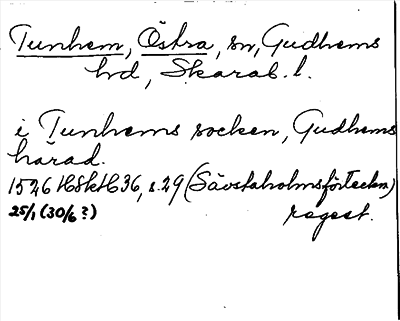 Tunhem, Östra, sn, Gudhems
hd, Skarab. l.
i Tunhems socken, Gudhems
härad.
1526 HSkH 36, s. 29 (Sävstaholmsförteckn)
25/1 (30/6?) regest.